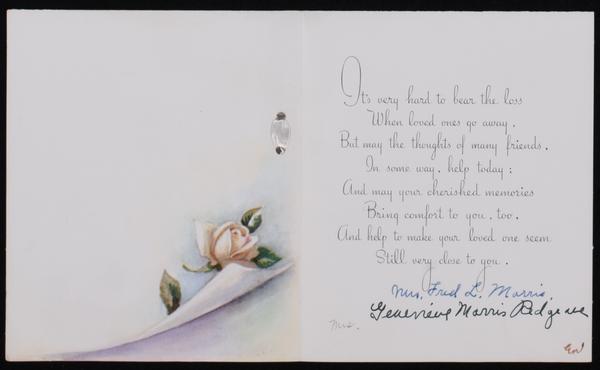 It's very hard to bear the loss
When loved ones go away.
But may the thoughts of many friends.
In some way, help today;
And may your cherished memories
Bring comfort to you, too.
And help to make your loved one seem
Still very close to you.
Mrs. Fred L. Morris.
Genevieve Morris Ridgeway
Mrs.